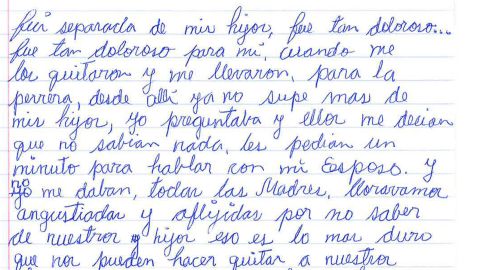 fui separada de mis hijos, fue tan doloroso...
fue tan doloroso para mi, cuando me
los quitaron y me llevaron, para la
perrera, desde alli ya no supe mas de
mis hijos, yo preguntaba y ellos me decian
que no sabian nada, les pedian un
minuto para hablar con mi Esposo. y
no me daban, todas las Madres, lloravamos
angustiadas y aflijidas por no saber
de nuestros y hijos eso es lo mas duro
que nos pueden hacer quitar a nuestros